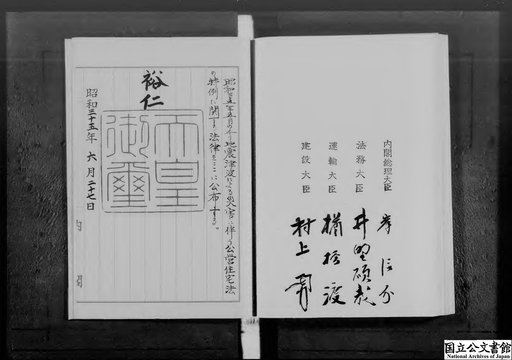 昭和三十五年五月のチリ地震津波による災害に伴う公営住宅法
の特例に関する法律をここに公布する。
裕仁
天皇
御璽
昭和三十五年六月二十七日
内閣総理大臣 岸信介
法務大臣 井野碩哉
運輸大臣 楢橋渡
建設大臣 村上勇
国立公文書館
National Archives of Japan